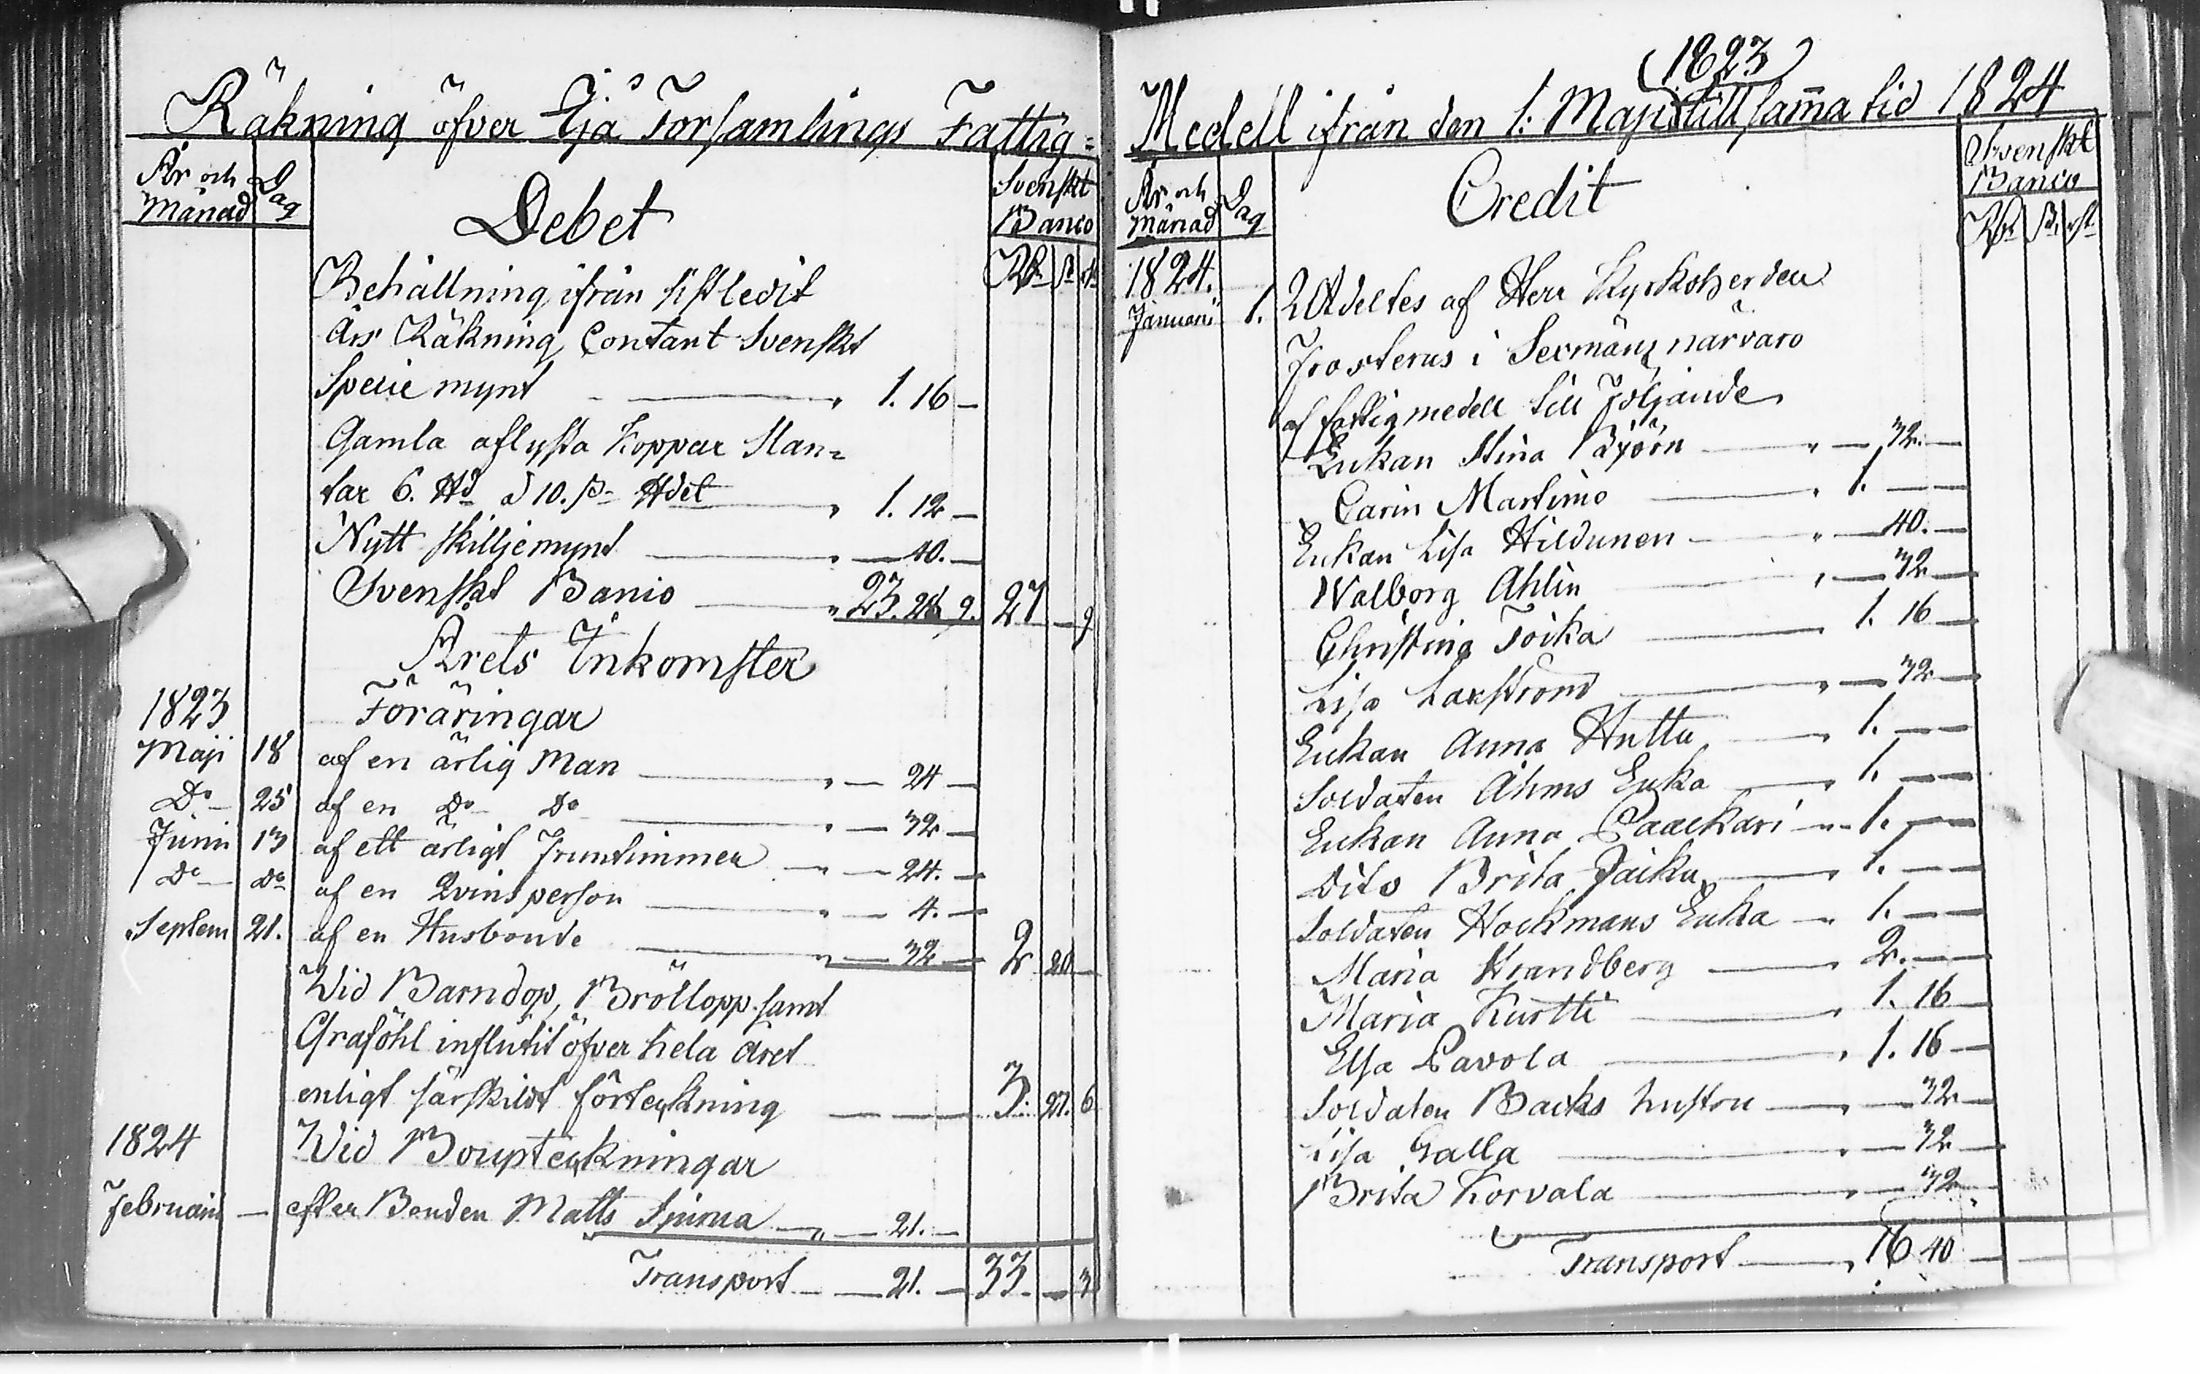 Räkning öfver Ijå Församlings Fattig=
År och Månad Dag Debet Svenskt Banco
Rd ß rst
Behållning ifrån sistledit
Års Räkning, Contant Svenskt
Specie mynt " 1. 16 —
Gamla aflysta Koppar Slan=
tar 6. ℔d à 10. ß ℔det " 1. 12 —
Nytt skilljemynt " — 40. —
Svenskt Banco " 23. 28 9. 27 — 9
Årets Inkomster
1823 Föräringar
Maji 18 af en ärlig Man " — 24 —
Do 25 af en Do Do " — 32 —
Junii 13 af ett ärligt Fruntimmer " — 24. —
Do Do af en Qvinsperson " — 4. —
Septem 21. af en Husbonde " — 32 — 2 20 —
Wid Barndop, Bröllopp samt
Graföhl influtit öfver hela året
enligt särskildt förteckning — — 3. 27. 6
1824 Wid Boupteckningar
Februarii — efter Bonden Matts " — 21. —
Transport — — 21. — 33. — 3
1823
Medell ifrån den 1: Maji till sam̅a tid 1824
År och Månad Dag Credit Svenskt Banco
Rd ß. rst
1824.
Januarii 1. Utdeltes af Herr Kyrkoherden
Frosterus i Sexmäns närvaro
af fattigmedell till Följande
Enkan Stina Björn " — 32. —
Carin Martimo " 1. —
Enkan Lisa Hildunen " — 40. —
Walborg Ahlin " — 32 —
Christina Toika 1. 16 —
Lisa Laxström " — 32 —
Enkan Anna Huttu " 1. —
Soldaten Åhms Enka " 1. —
Enkan Anna Paackari " 1. —
Dito Brita Jaiku " 1. —
Soldaten Hockmans Enka " 1. —
Maria Strandberg " 2. —
Maria Kurtti " 1. 16 —
Elsa Pavola " 1. 16 —
Soldaten Backs hustru " — 32 —
Lisa Galla " — 32 —
Brita Korvala " — 32 —
Transport " 16 40 —